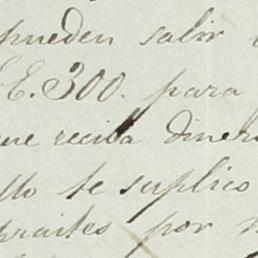 pueden salir
E. 300. para
que reciba dinero
te suplico
por